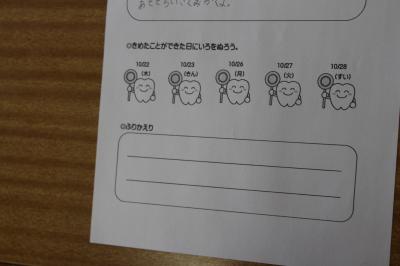 ◎きめたことができた日にいろをぬろう。
10/22 10/23 10/26 10/27 10/28
(木) (きん) (月) (火) (すい)
◎ふりかえり